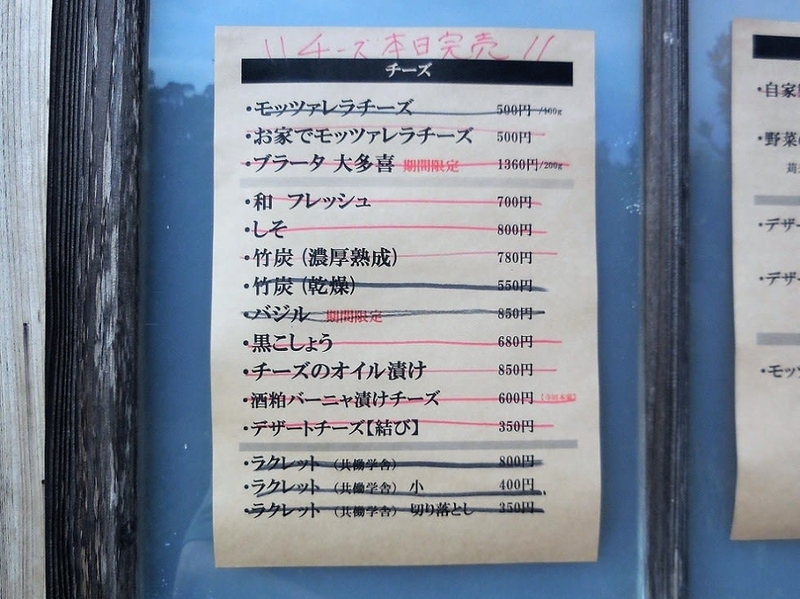 !!チーズ本日完売!!
チーズ
・モッツァレラチーズ 500円/100g
・お家でモッツァレラチーズ 500円
・ブラータ 大多喜 期間限定 1360円/200g
・和 フレッシュ 700円
・しそ 800円
・竹炭(濃厚熟成) 780円
・竹炭(乾燥) 550円
・バジル 期間限定 850円
・黒こしょう 680円
・チーズのオイル漬け 850円
・酒粕バーニャ漬けチーズ 600円
・デザートチーズ【結び】 350円
・ラクレット (共働学舎) 800円
・ラクレット (共働学舎) 小 400円
・ラクレット (共働学舎) 切り落とし 350円
・自家
・野菜
・デザー
・デザー
・モッツ